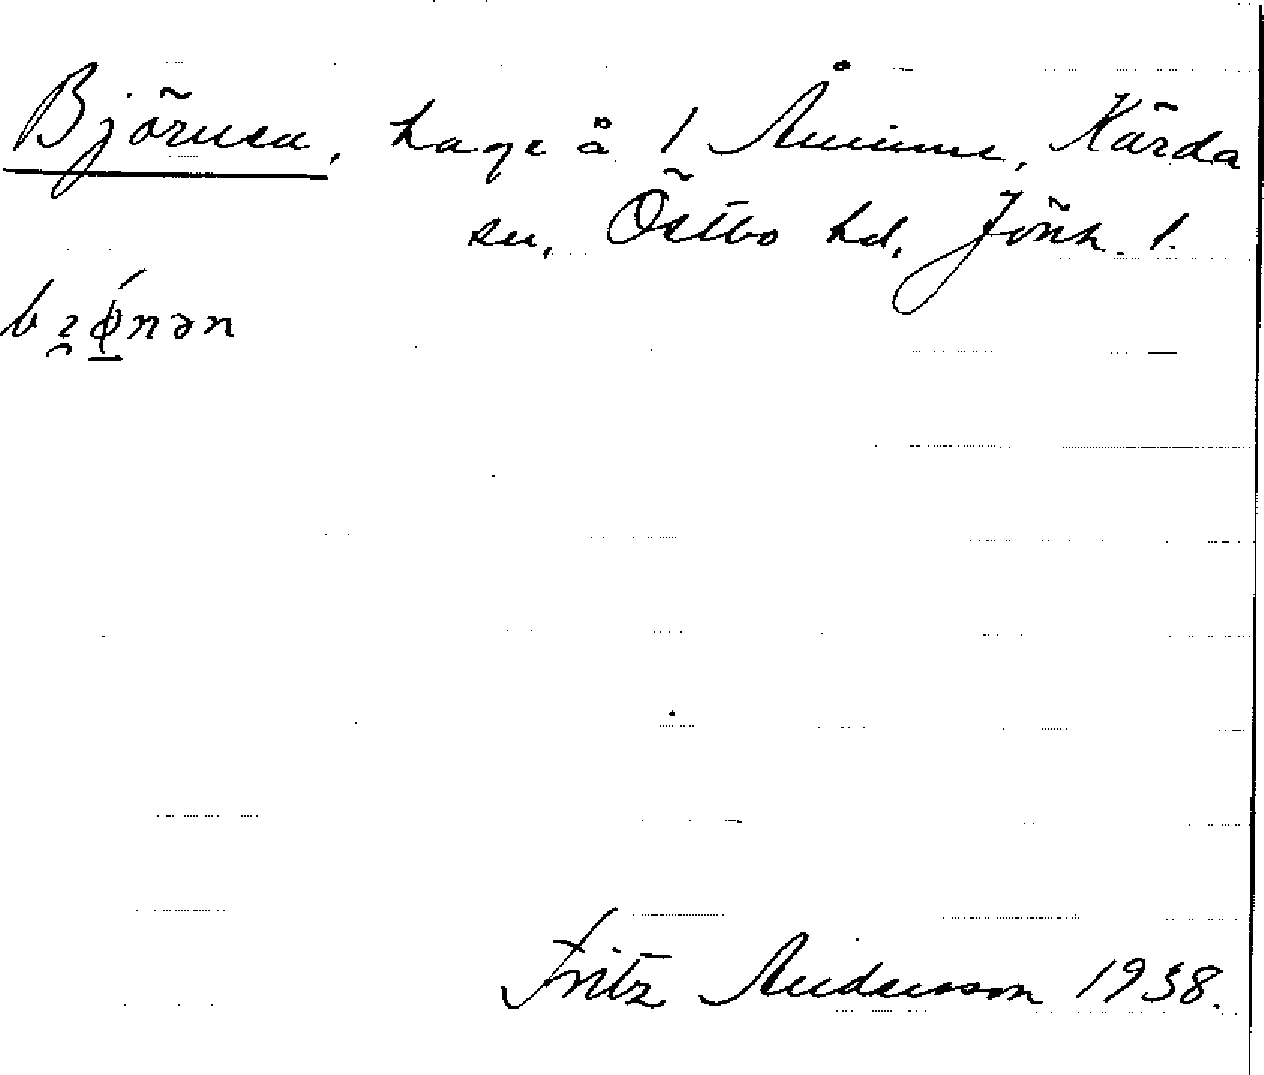 Björnen, hage å 1 Åminne, Kärda
sn, Östbo hd, Jönk. l.
Fritz Andersson 1938.